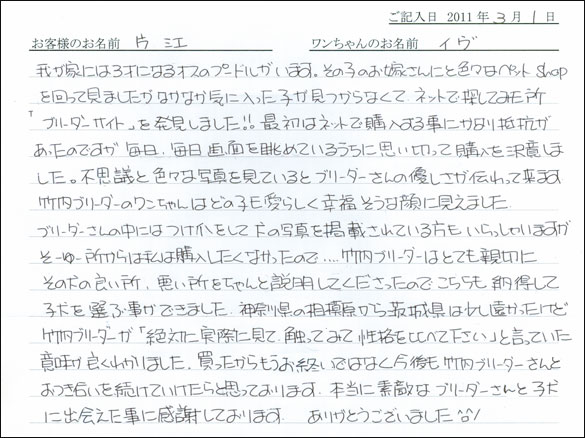 ご記入日 2011年3月1日
お客様のお名前 片江 ワンちゃんのお名前 イヴ
我が家には3才になるオスのプードルがいます。その子のお嫁さんにと色々なペットshop
を回って見ましたがなかなか気に入った子が見つからなくて、ネットで探してみた所
「ブリーダーサイト」を発見しました!! 最初はネットで購入する事にかなり抵抗が
あったのですが毎日、毎日画面を眺めているうちに思い切って購入を決意しま
した。不思議と色々な写真を見ているとブリーダーさんの優しさが伝わって来ます
竹内ブリーダーのワンちゃんはどの子も愛らしく幸福そうな顔に見えました
ブリーダーさんの中にはつけパイをして犬の写真を掲載されている方もいらっしゃいますが
そーゆー所からは私は購入したくなかったので....竹内ブリーダーはとても親切に
その犬の良い所、悪い所をちゃんと説明してくださったのでこちらも納得して
子犬を選ぶ事ができました。神奈川県の相模原から茨城県は少し遠かったけど
竹内ブリーダーが「絶対に実際に見て、触ってみて性格を比べて下さい」と言っていた
意味が良くわかりました。買ったからもうお終いではなく今後も竹内ブリーダーさんと
おつき合いを続けていけたらと思っております。本当に素敵なブリーダーさんと子犬
に出会えた事に感謝しております。 ありがとうございました^^/